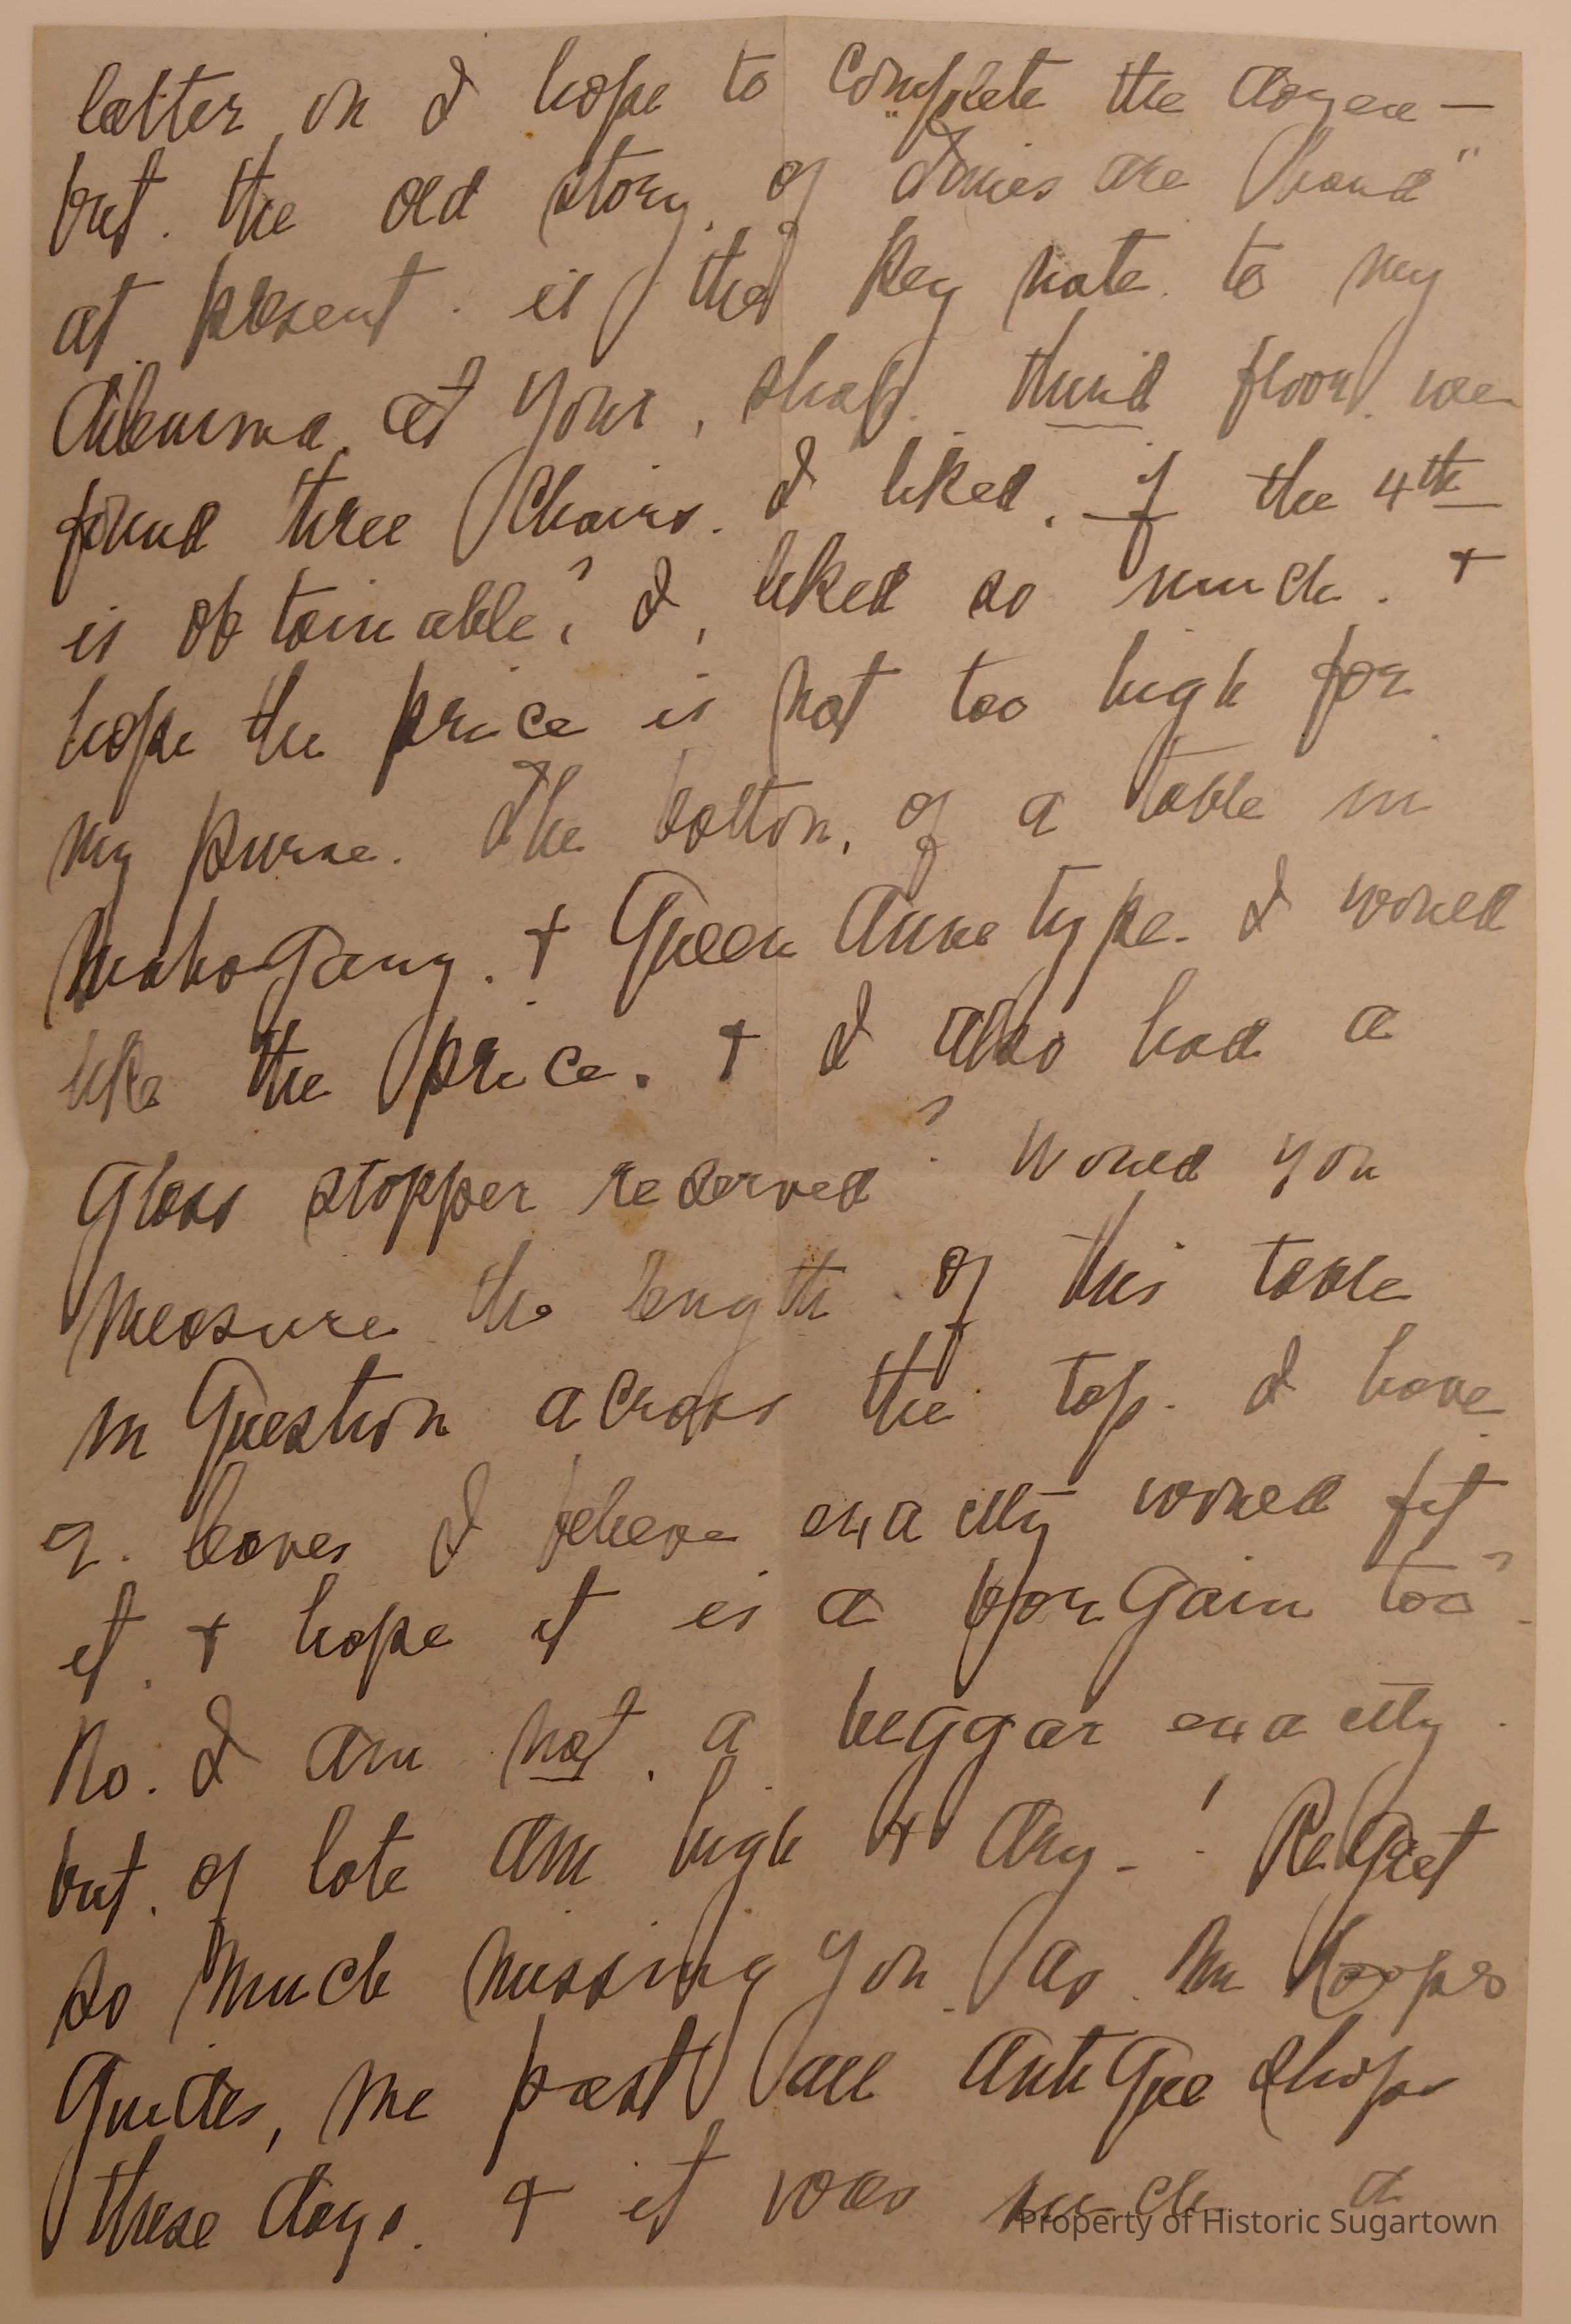 latter on I hope to complete the dozen —
but. the old story, of "times are hard"
at present. is the key note. to my
dilemma. at your, shop. third floor. we
found three Chairs. I liked. if the 4th
is obtainable? I, liked so much. +
hope the price is not too high for
my purse. The bottom, of a table in
mahogany. + Queen Anne type. I would
like the price. + I also had a
Glass stopper reserved? Would you
measure the length of this table
in Question across the top. I have
2. leaves I believe exactly would fit
it. + hope it is a bargain too"
No. I am not. a beggar exactly.
but. of late am high + dry - ! Regret
so much missing you. as. Mr Hoopes
Guides, me past all AntiQue Shops
these days. + it was such a
Property of Historic Sugartown